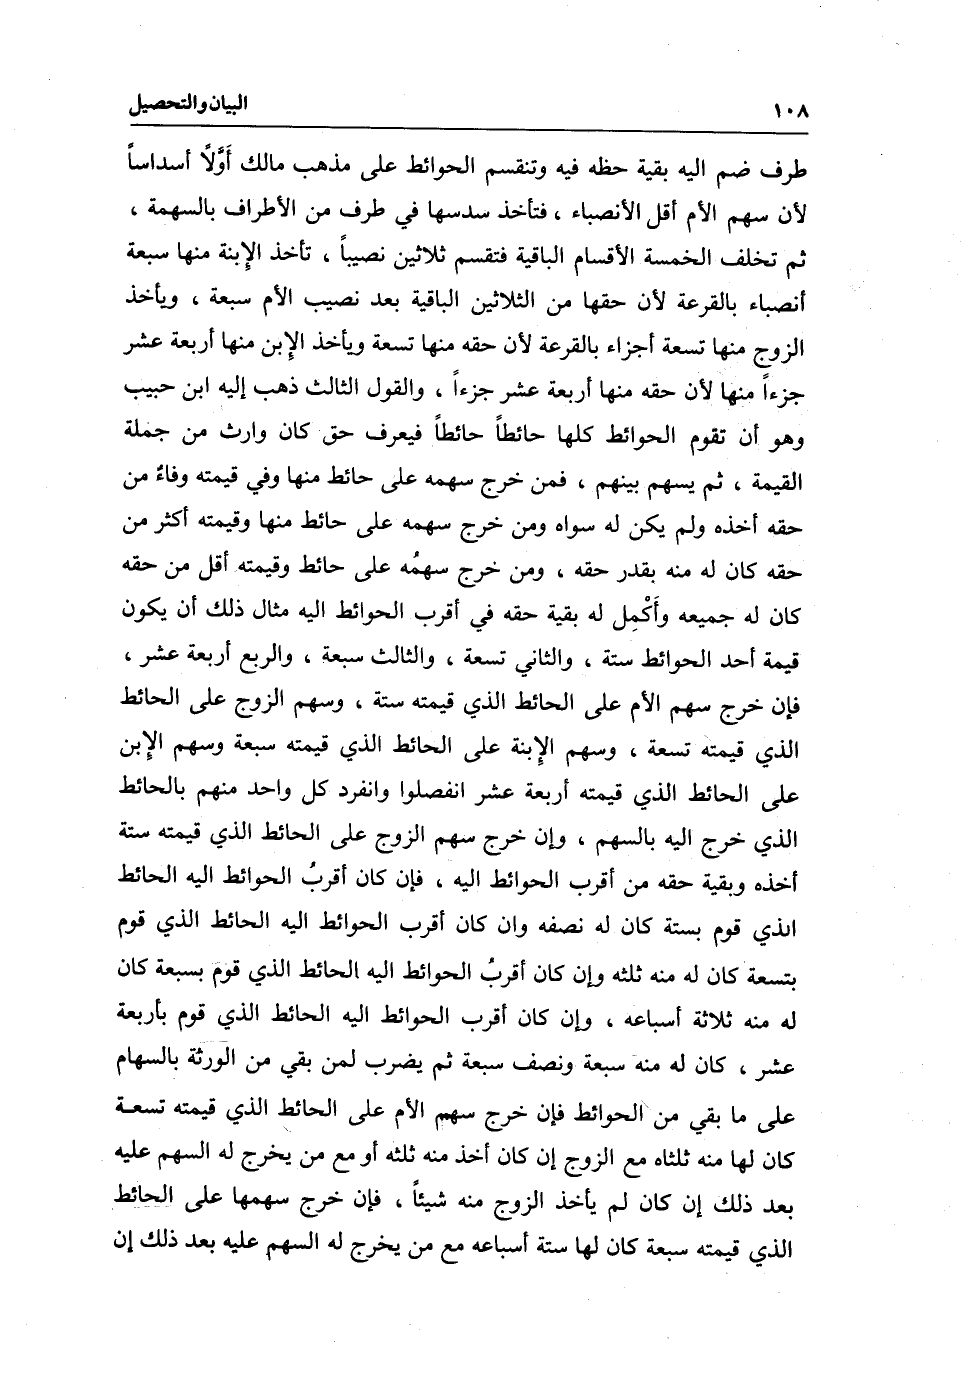 ١٠٨
البيان والتحصيل
طرف ضم اليه بقية حظه فيه وتنقسم الحوائط على مذهب مالك أَوَّلًا أسداساً
لأن سهم الأم أقل الأنصباء ، فتأخذ سدسها في طرف من الأطراف بالسهمة ،
ثم تخلف الخمسة الأقسام الباقية فتقسم ثلاثين نصيباً ، تأخذ الإبنة منها سبعة
أنصباء بالقرعة لأن حقها من الثلاثين الباقية بعد نصيب الأم سبعة ، ويأخذ
الزوج منها تسعة أجزاء بالقرعة لأن حقه منها تسعة ويأخذ الإبن منها أربعة عشر
جزءاً منها لأن حقه منها أربعة عشر جزءاً ، والقول الثالث ذهب إليه ابن حبيب
وهو أن تقوم الحوائط كلها حائطاً حائطاً فيعرف حق كان وارث من جملة
القيمة ، ثم يسهم بينهم ، فمن خرج سهمه على حائط منها وفي قيمته وفاءُ من
حقه أخذه ولم يكن له سواه ومن خرج سهمه على حائط منها وقيمته أكثر من
حقه كان له منه بقدر حقه ، ومن خرج سهمُه على حائط وقيمته أقل من حقه
كان له جميعه وأَكْمِل له بقية حقه في أقرب الحوائط اليه مثال ذلك أن يكون
قيمة أحد الحوائط ستة ، والثاني تسعة ، والثالث سبعة ، والربع أربعة عشر ،
فإن خرج سهم الأم على الحائط الذي قيمته ستة ، وسهم الزوج على الحائط
الذي قيمته تسعة ، وسهم الإبنة على الحائط الذي قيمته سبعة وسهم الإبن
على الحائط الذي قيمته أربعة عشر انفصلوا وانفرد كل واحد منهم بالحائط
الذي خرج اليه بالسهم ، وإن خرج سهم الزوج على الحائط الذي قيمته ستة
أخذه وبقية حقه من أقرب الحوائط اليه ، فإن كان أقربُ الحوائط اليه الحائط
الذي قوم بستة كان له نصفه وان كان أقرب الحوائط اليه الحائط الذي قوم
بتسعة كان له منه ثلثه وإن كان أقربُ الحوائط اليه الحائط الذي قوم بسبعة كان
له منه ثلاثة أسباعه ، وإن كان أقرب الحوائط اليه الحائط الذي قوم بأربعة
عشر ، كان له منه سبعة ونصف سبعة ثم يضرب لمن بقي من الورثة بالسهام
على ما بقي من الحوائط فإن خرج سهم الأم على الحائط الذي قيمته تسعة
كان لها منه ثلثاه مع الزوج إن كان أخذ منه ثلثه أو مع من يخرج له السهم عليه
بعد ذلك إن كان لم يأخذ الزوج منه شيئاً ، فإن خرج سهمها على الحائط
الذي قيمته سبعة كان لها ستة أسباعه مع من يخرج له السهم عليه بعد ذلك إن